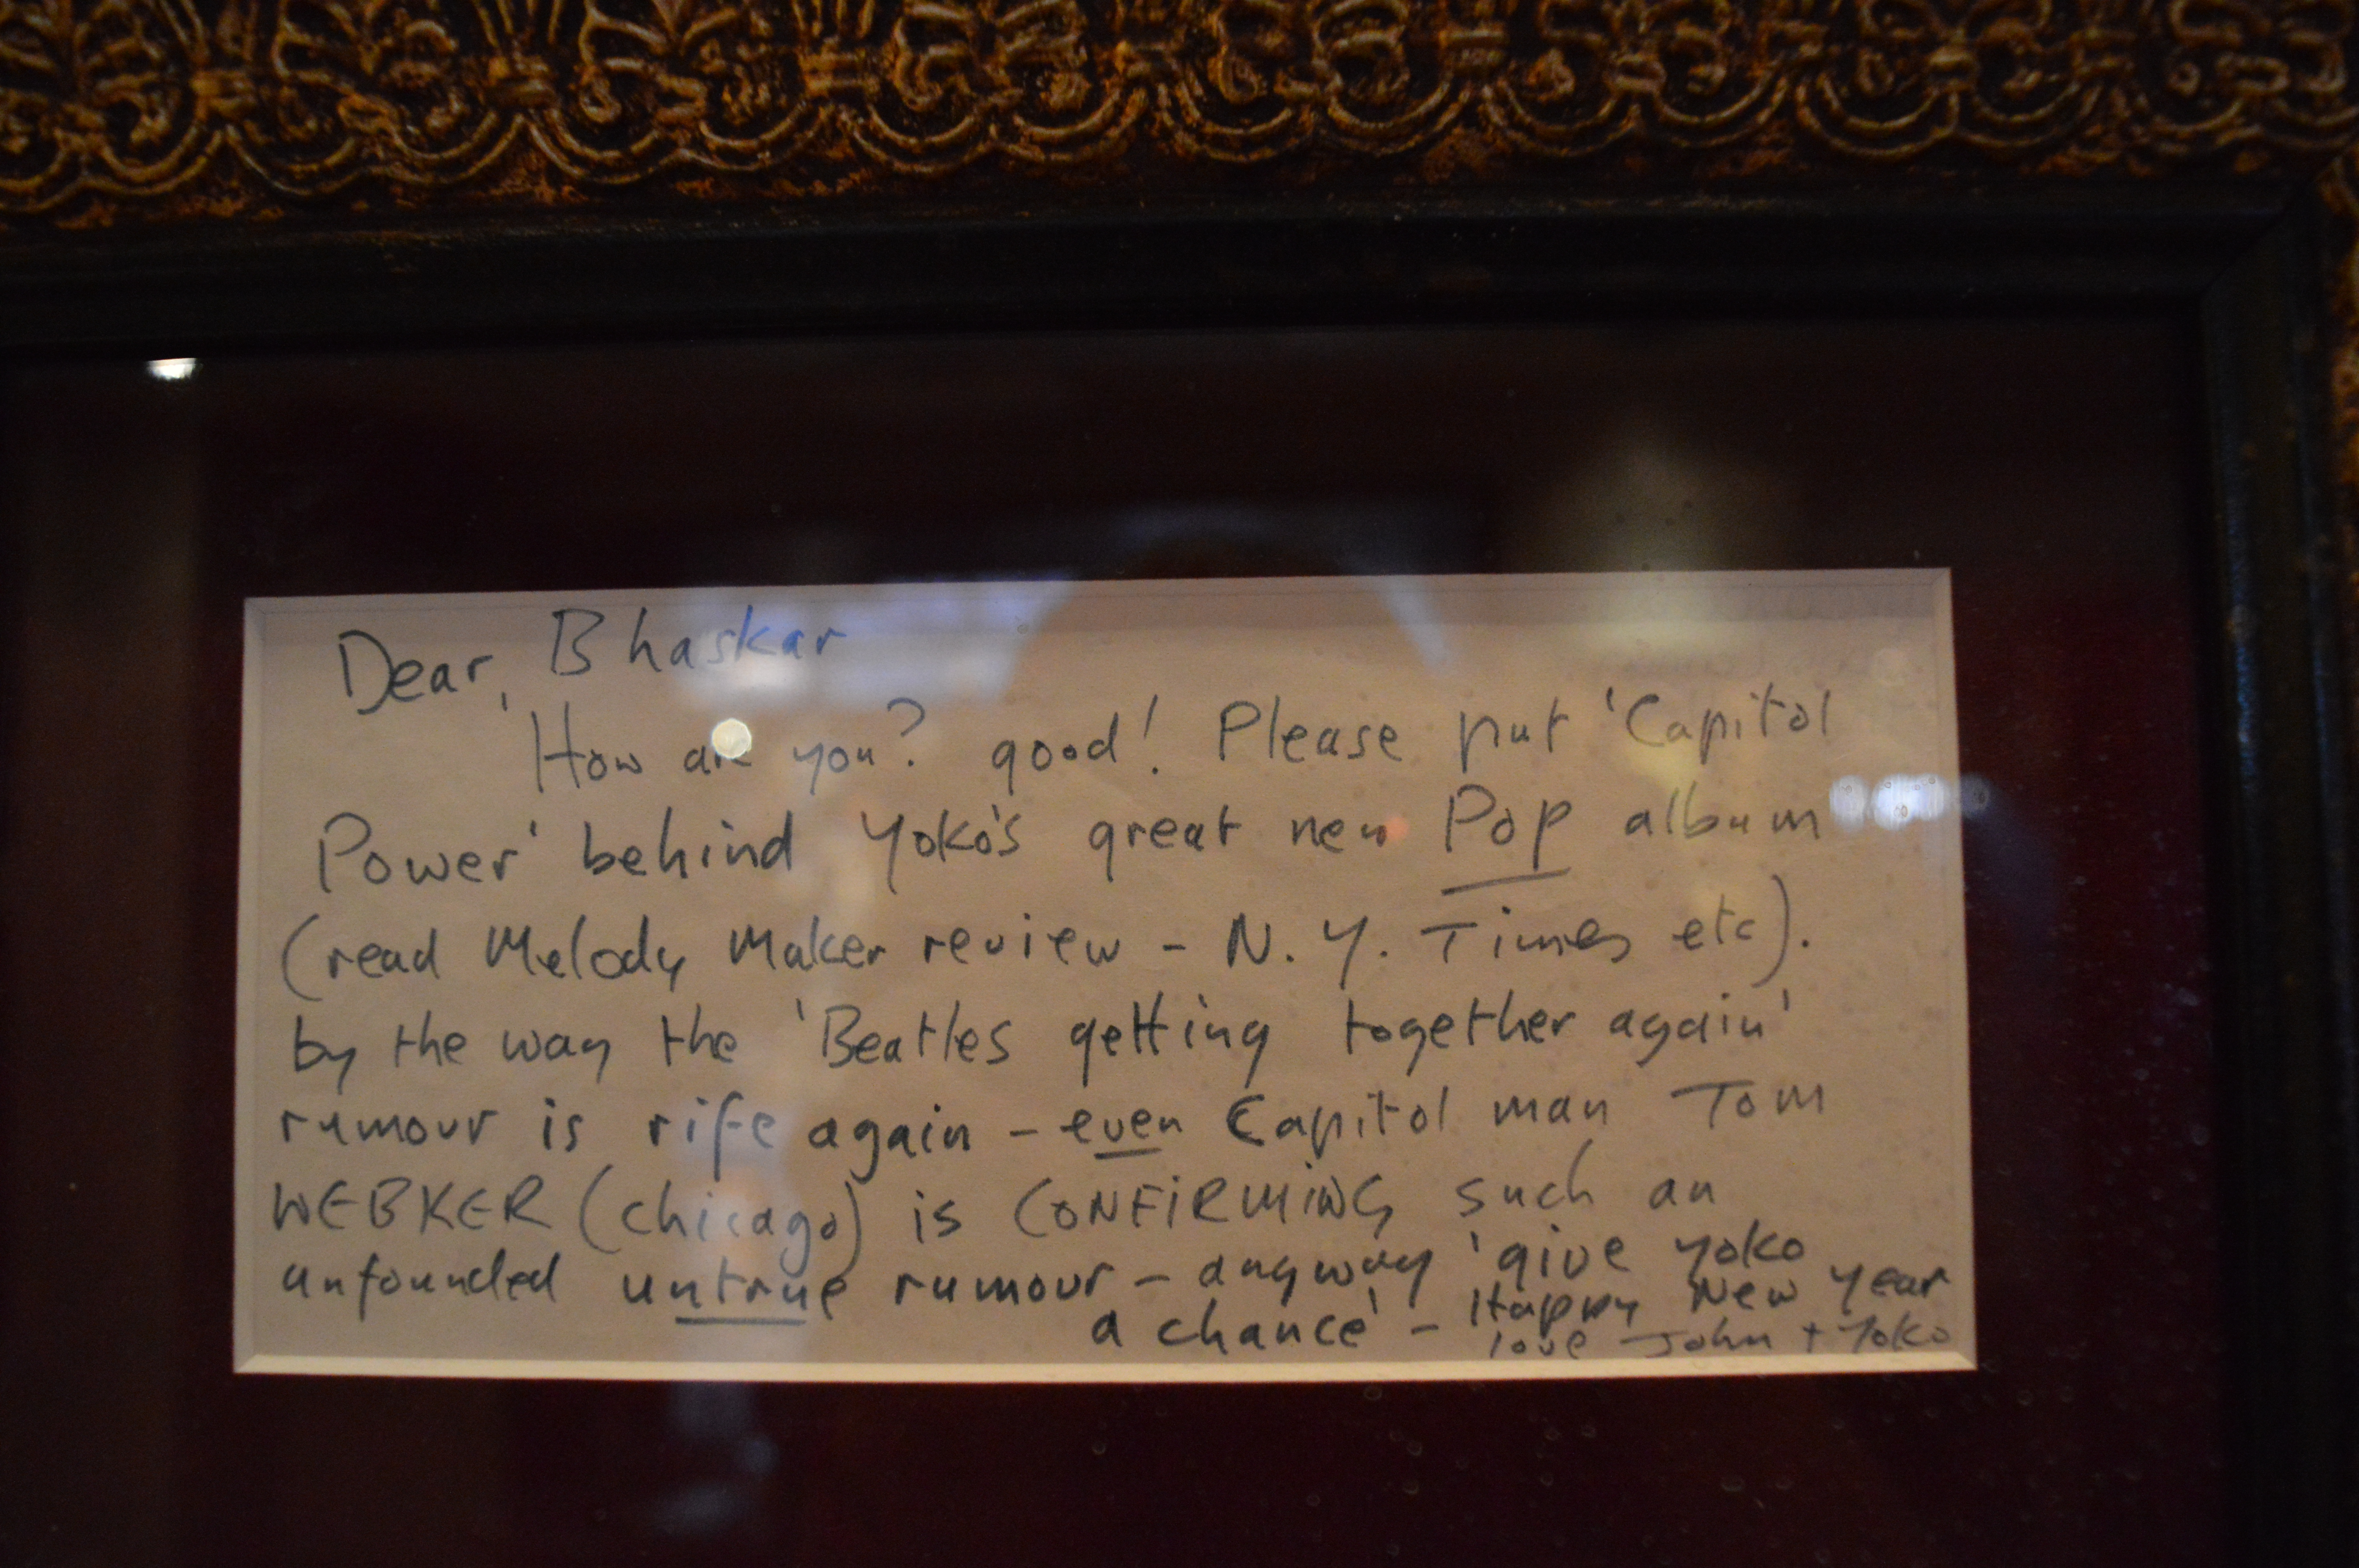 Dear, Bhaskar
How are you? good! Please put 'Capitol
Power' behind Yoko's great new Pop album
(read Melody Maker review - N.Y. Times etc).
by the way the 'Beatles getting together again'
rumour is rife again - even Capitol man Tom
WEBKER (chicago) is CONFIRMING such an
unfounded untrue rumour - anyway 'give Yoko
a chance' - Happy New Year
love John + Yoko